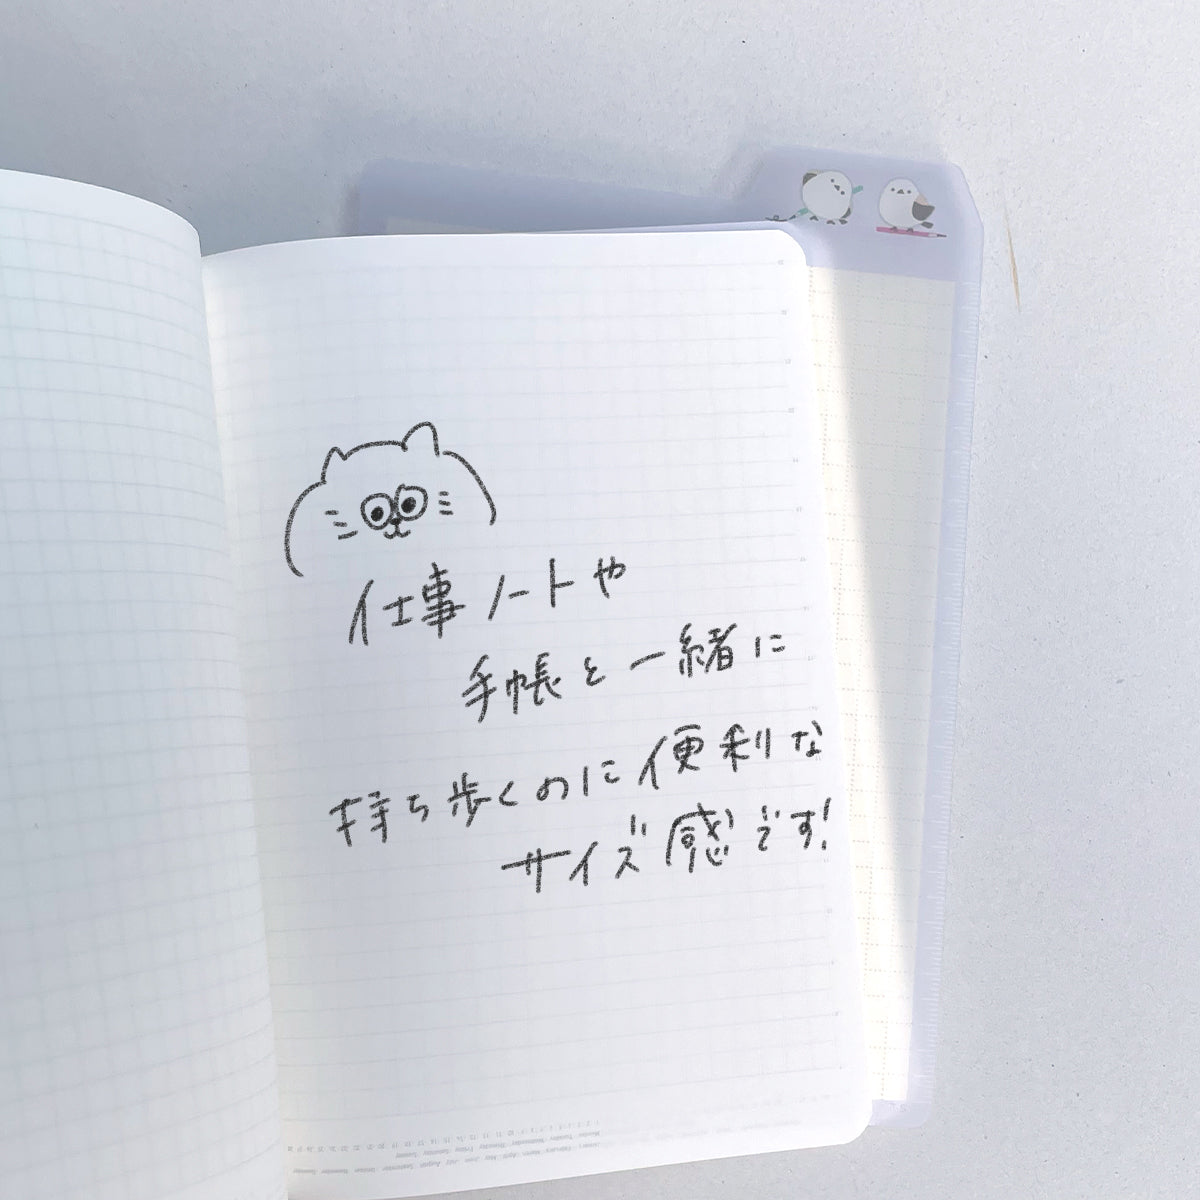 仕事ノートや
手帳と一緒に
持ち歩くのに便利な
サイズ感です!